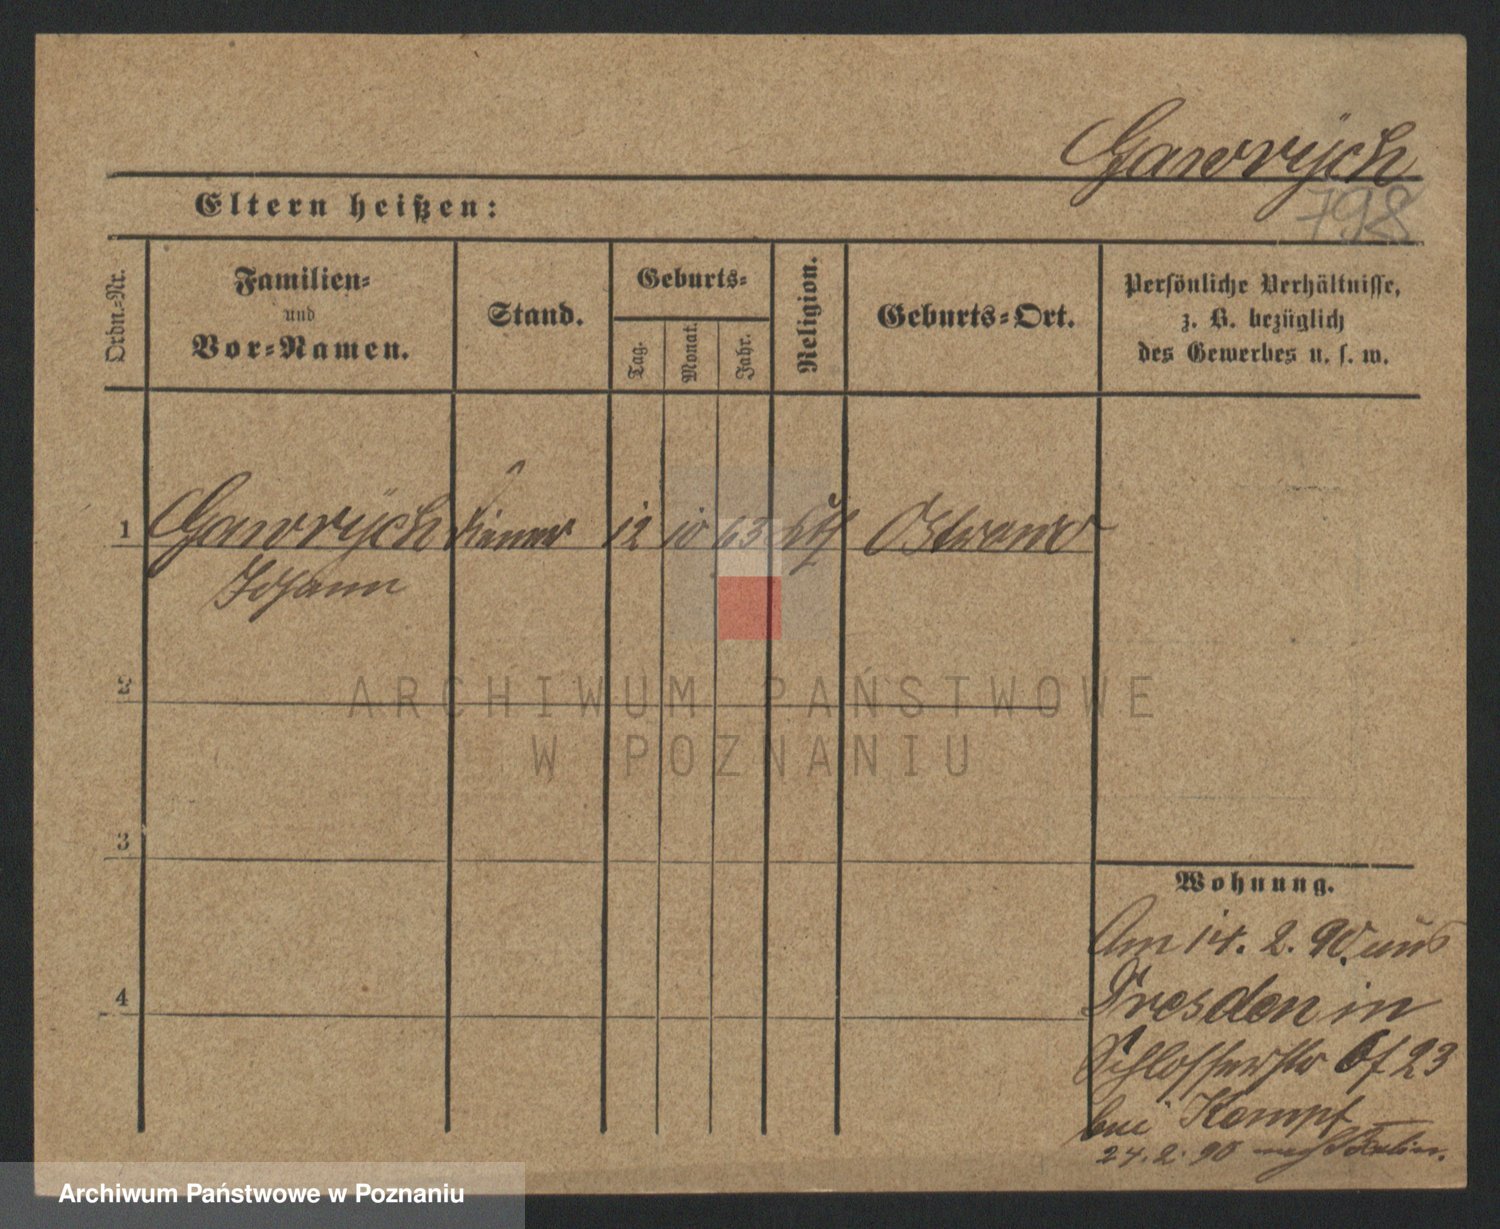 Gawrÿch
798
Eltern heißen:
Ordn.-Nr.
Familien-
und
Vor-Namen.
Stand.
Geburts-
Tag.
Monat.
Jahr.
Religion.
Geburts-Ort.
Persönliche Verhältnisse,
z. B. bezüglich
des Gewerbes u. s. w.
1 Gawrÿch Diener 12 10 63 kth Ostrowo
Johann
2
3
4
Wohnung.
Am 14. 2. 90. aus
Dresden in
Schlosserstr 6 f 23
bei Kempf
24. 2. 90 nach
ARCHIWUM PAŃSTWOWE
W POZNANIU
Archiwum Państwowe w Poznaniu